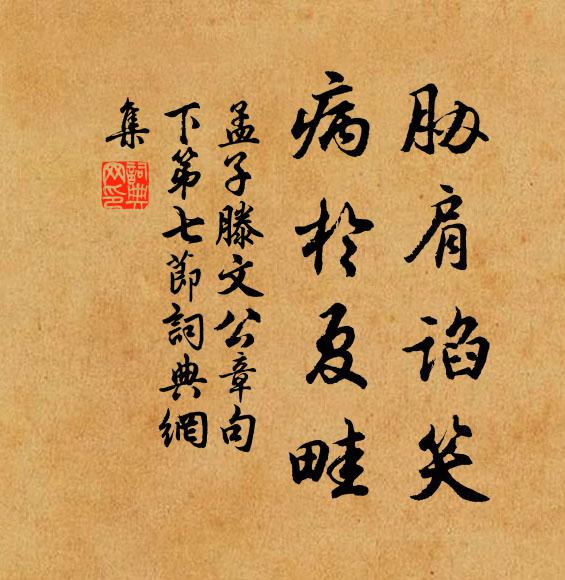 胁肩谄笑
病於夏畦
孟子滕文公章句
下第七節詞典網
集
詞典
网印